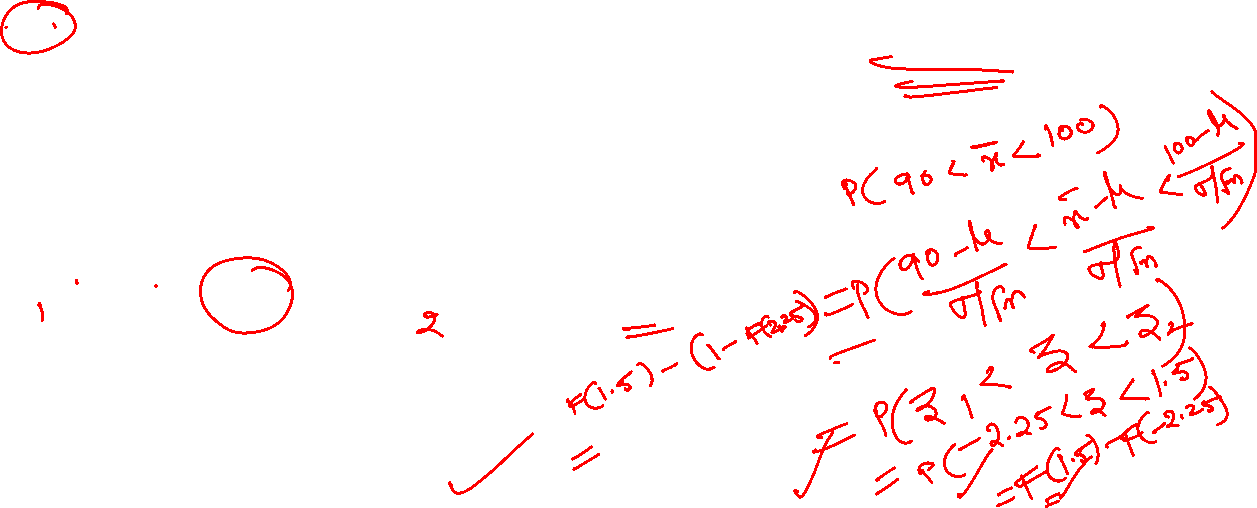 P(90 < x̄ < 100)
= P(90-μ/σ/√n < x̄-μ/σ/√n < 100-μ/σ/√n)
= P(z₁ < z < z₂)
= P(-2.25 < z < 1.5)
= F(1.5) - F(-2.25)
= F(1.5) - (1 - F(2.25))
=
1
2